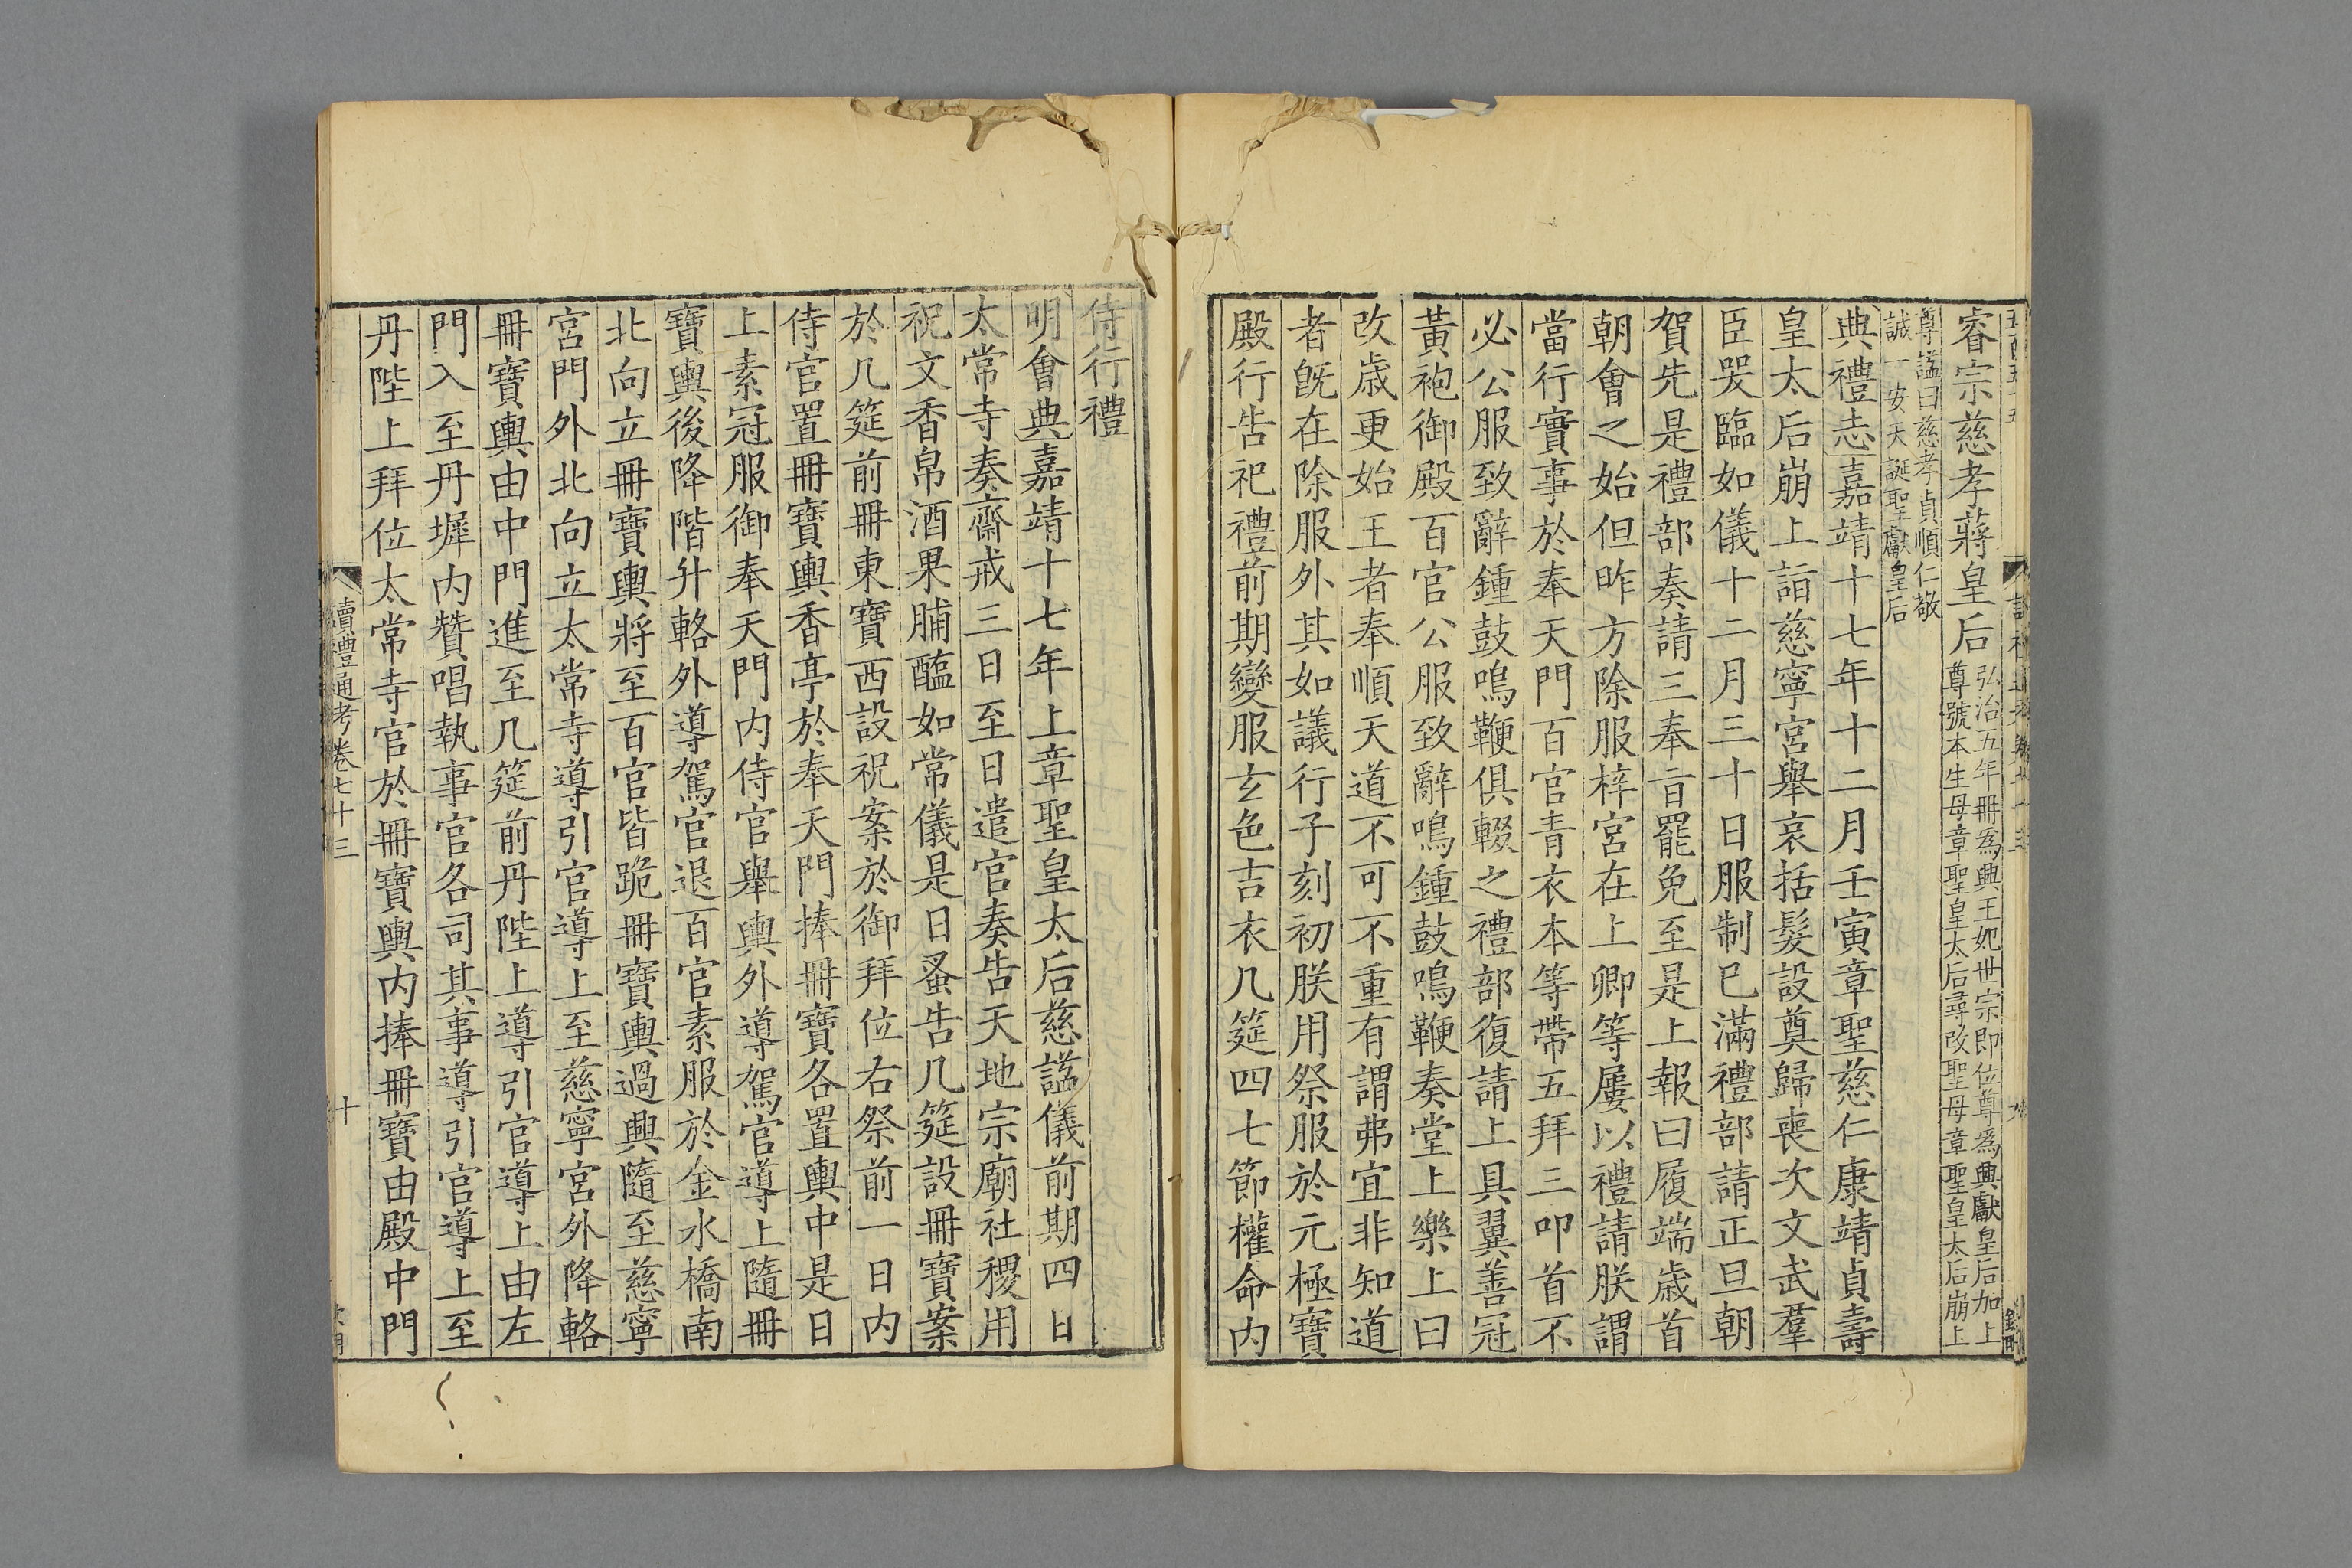 睿宗慈孝蔣皇后弘治五年冊為興王妃世宗即位尊為興獻皇后加上
尊號本生母章聖皇太后尋改聖母章聖皇太后崩上
尊謚曰慈孝貞順仁敬
誠一安天誕聖獻皇后
典禮志嘉靖十七年十二月壬寅章聖慈仁康靖貞壽
皇太后崩上詣慈寧宮舉哀括髮設奠歸喪次文武羣
臣哭臨如儀十二月三十日服制已滿禮部請正旦朝
賀先是禮部奏請三奉㫖罷免至是上報曰履端歲首
朝會之始但昨方除服梓宮在上卿等屢以禮請朕謂
當行實事於奉天門百官青衣本等帶五拜三叩首不
必公服致辭鍾鼓鳴鞭俱輟之禮部復請上具翼善冠
黃袍御殿百官公服致辭鳴鍾鼓鳴鞭奏堂上樂上曰
改歲更始王者奉順天道不可不重有謂弗宜非知道
者旣在除服外其如議行子刻初朕用祭服於元極寶
殿行告祀禮前期變服玄色吉衣几筵四七節權命內
侍行禮
明會典嘉靖十七年上章聖皇太后慈謚儀前期四日
太常寺奏齋戒三日至日遣官奏告天地宗廟社稷用
祝文香帛酒果脯醢如常儀是日蚤告几筵設冊寶案
於几筵前冊東寶西設祝案於御拜位右祭前一日內
侍官置冊寶輿香亭於奉天門捧冊寶各置輿中是日
上素冠服御奉天門內侍官舉輿外導駕官導上隨冊
寶輿後降階升輅外導駕官退百官素服於金水橋南
北向立冊寶輿將至百官皆跪冊寶輿過興隨至慈寧
宮門外北向立太常寺導引官導上至慈寧宮外降輅
冊寶輿由中門進至几筵前丹陛上導引官導上由左
門入至丹墀內贊唱執事官各司其事導引官導上至
丹陛上拜位太常寺官於冊寶輿內捧冊寶由殿中門
讀禮通考卷七十三
十